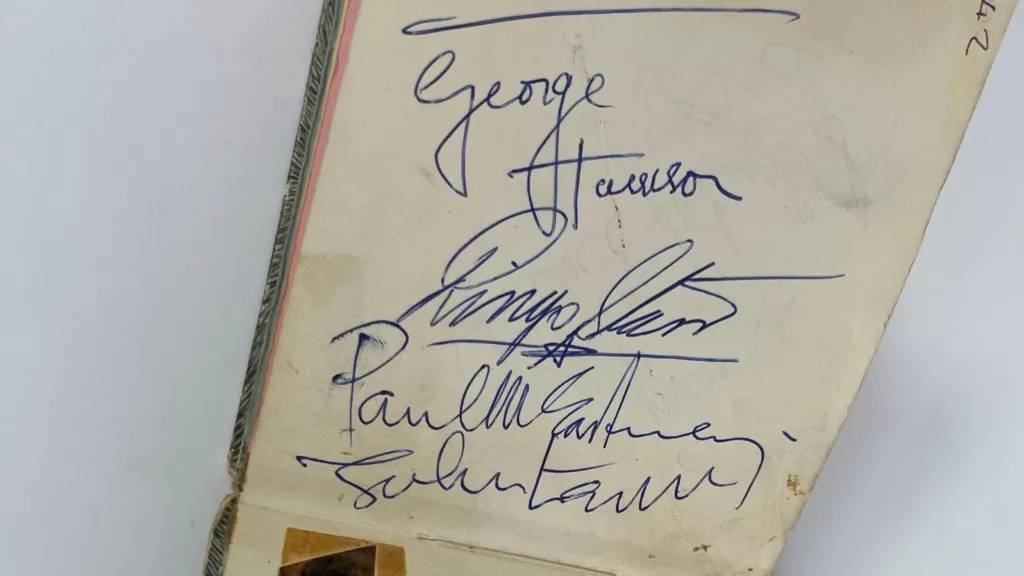 24
George
Harrison
Ringo Starr
Paul McCartney
John Lennon